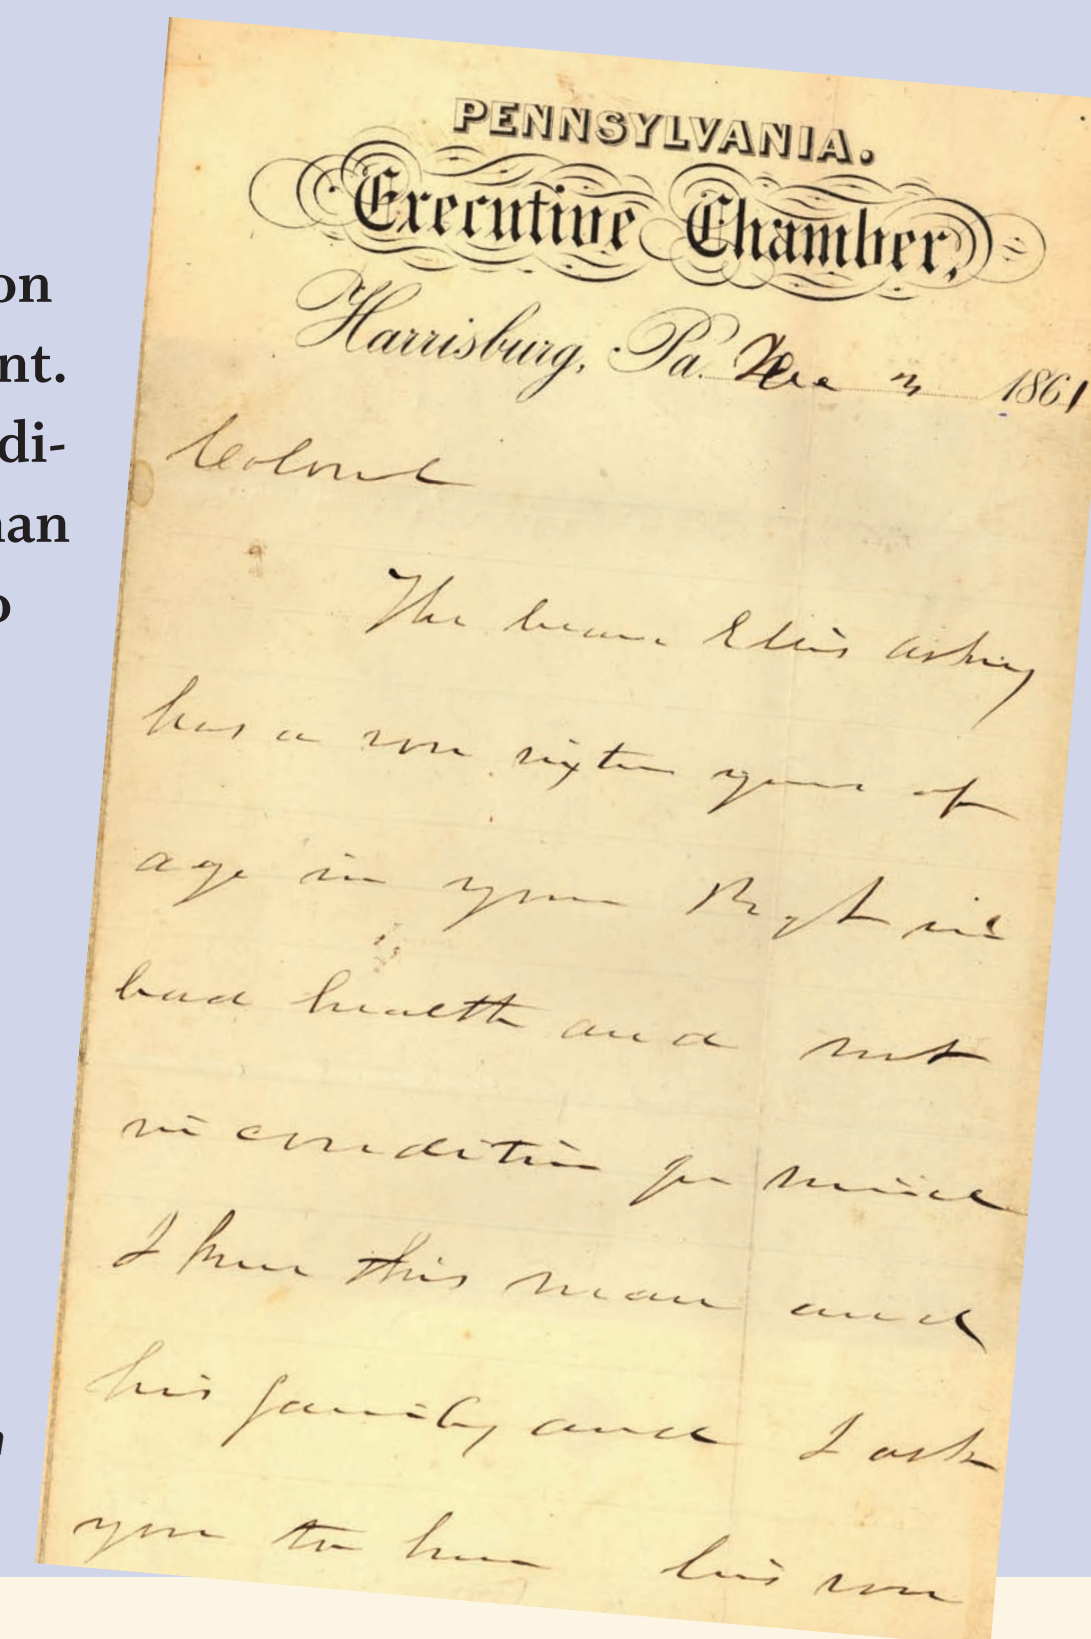 on
nt.
di-
an
o
PENNSYLVANIA.
Executive Chamber,
Harrisburg, Pa. Dec 3 1861
Colonel
The bearer Ellis
has a son sixteen years of
age in your Regt in
bad health and not
in condition for
I know this man and
his family and I ask
you to have his son